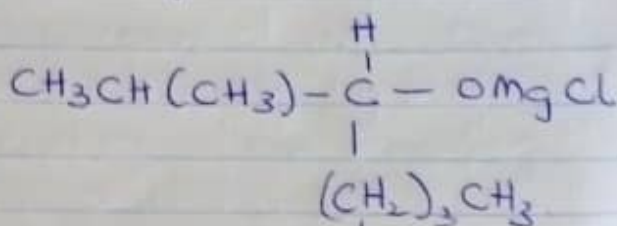 H
CH₃CH(CH₃)-C-OMgCl
(CH₂)₃CH₃